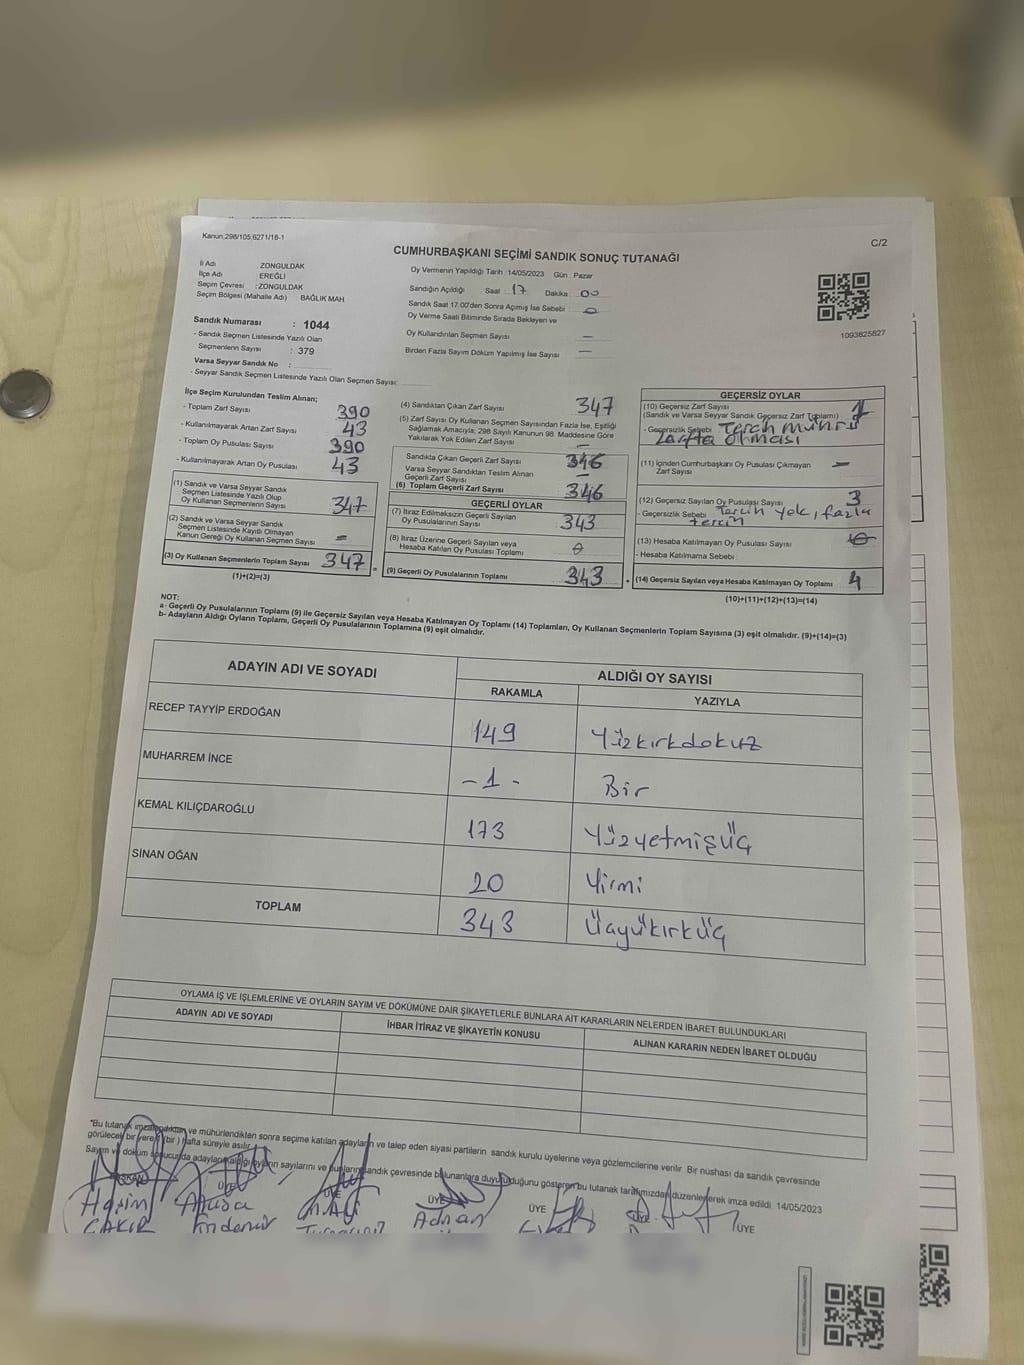 Kanun,298/105,6271/18-1
C/2
CUMHURBAŞKANI SEÇİMİ SANDIK SONUÇ TUTANAĞI
İl Adı ZONGULDAK
İlçe Adı EREĞLİ
Seçim Çevresi : ZONGULDAK
Seçim Bölgesi (Mahalle Adı) BAĞLIK MAH
Sandık Numarası : 1044
- Sandık Seçmen Listesinde Yazılı Olan
Seçmenlerin Sayısı : 379
Varsa Seyyar Sandık No :
- Seyyar Sandık Seçmen Listesinde Yazılı Olan Seçmen Sayısı:
Oy Vermenin Yapıldığı Tarih :14/05/2023 Gün : Pazar
Sandığın Açıldığı Saat 17 Dakika : 00
Sandık Saat 17:00'den Sonra Açımış İse Sebebi :
Oy Verme Saati Bitiminde Sırada Bekleyen ve
Oy Kullandırılan Seçmen Sayısı —
Birden Fazla Sayım Döküm Yapılmış İse Sayısı —
1093825827
İlçe Seçim Kurulundan Teslim Alınan;
- Toplam Zarf Sayısı 390
- Kullanılmayarak Artan Zarf Sayısı 43
- Toplam Oy Pusulası Sayısı 390
- Kullanılmayarak Artan Oy Pusulası 43
(1) Sandık ve Varsa Seyyar Sandık
Seçmen Listesinde Yazılı Olup
Oy Kullanan Seçmenlerin Sayısı 347
(2) Sandık ve Varsa Seyyar Sandık
Seçmen Listesinde Kayıtlı Olmayan
Kanun Gereği Oy Kullanan Seçmen Sayısı
(3) Oy Kullanan Seçmenlerin Toplam Sayısı 347
(1)+(2)=(3)
(4) Sandıktan Çıkan Zarf Sayısı 347
(5) Zarf Sayısı Oy Kullanan Seçmen Sayısından Fazla İse, Eşitliği
Sağlamak Amacıyla; 298 Sayılı Kanunun 98. Maddesine Göre
Yakılarak Yok Edilen Zarf Sayısı —
Sandıkta Çıkan Geçerli Zarf Sayısı 346
Varsa Seyyar Sandıktan Teslim Alınan
Geçerli Zarf Sayısı —
(6) Toplam Geçerli Zarf Sayısı 346
GEÇERLİ OYLAR
(7) İtiraz Edilmeksizin Geçerli Sayılan
Oy Pusulalarının Sayısı 343
(8) İtiraz Üzerine Geçerli Sayılan veya
Hesaba Katılan Oy Pusulası Toplamı
(9) Geçerli Oy Pusulalarının Toplamı 343
GEÇERSİZ OYLAR
(10) Geçersiz Zarf Sayısı
(Sandık ve Varsa Seyyar Sandık Geçersiz Zarf Toplamı) 1
- Geçersizlik Sebebi Tercih mührü
Zarfta olması
(11) İçinden Cumhurbaşkanı Oy Pusulası Çıkmayan
Zarf Sayısı —
(12) Geçersiz Sayılan Oy Pusulası Sayısı 3
- Geçersizlik Sebebi Tercih yok, fazla
tercih
(13) Hesaba Katılmayan Oy Pusulası Sayısı
- Hesaba Katılmama Sebebi :
(14) Geçersiz Sayılan veya Hesaba Katılmayan Oy Toplamı 4
(10)+(11)+(12)+(13)=(14)
NOT:
a- Geçerli Oy Pusulalarının Toplamı (9) ile Geçersiz Sayılan veya Hesaba Katılmayan Oy Toplamı (14) Toplamları, Oy Kullanan Seçmenlerin Toplam Sayısına (3) eşit olmalıdır. (9)+(14)=(3)
b- Adayların Aldığı Oyların Toplamı, Geçerli Oy Pusulalarının Toplamına (9) eşit olmalıdır.
ADAYIN ADI VE SOYADI
ALDIĞI OY SAYISI
RAKAMLA YAZIYLA
RECEP TAYYİP ERDOĞAN 149 Yüzkırkdokuz
MUHARREM İNCE -1- Bir
KEMAL KILIÇDAROĞLU 173 Yüzyetmişüç
SİNAN OĞAN 20 Yirmi
TOPLAM 343 Üçyükırküç
OYLAMA İŞ VE İŞLEMLERİNE VE OYLARIN SAYIM VE DÖKÜMÜNE DAİR ŞİKAYETLERLE BUNLARA AİT KARARLARIN NELERDEN İBARET BULUNDUKLARI
ADAYIN ADI VE SOYADI İHBAR İTİRAZ VE ŞİKAYETİN KONUSU ALINAN KARARIN NEDEN İBARET OLDUĞU
*Bu tutanak imzalandıktan ve mühürlendikten sonra seçime katılan adayların ve talep eden siyasi partilerin sandık kurulu üyelerine veya gözlemcilerine verilir. Bir nüshası da sandık çevresinde
görülecek bir yere 1 (bir) hafta süreyle asılır.
Sayım ve döküm sonucunda adayların aldığı oyların sayılarını ve bunların sandık çevresinde bulunanlara duyurulduğunu gösteren bu tutanak tarafımızdan düzenlenerek imza edildi. 14/05/2023
BAŞKAN ÜYE ÜYE ÜYE ÜYE ÜYE ÜYE
Adnan
ÇAKIR